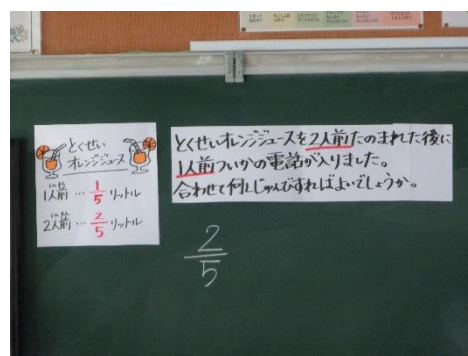 とくせい
オレンジジュース
1人前…1/5リットル
2人前…2/5リットル
とくせいオレンジジュースを2人前たのまれた後に
1人前ついかの電話が入りました。
合わせて何Lじゅんびすればよいでしょうか。
2/5